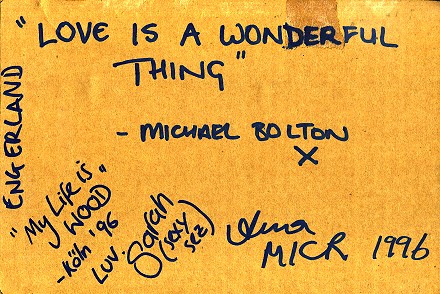 "LOVE IS A WONDERFUL
THING"
- MICHAEL BOLTON
X
ENGERLAND
"My Life is
WOOD"
- Köln '96
LUV.
Sarah
(sexy
sez)
MICR 1996